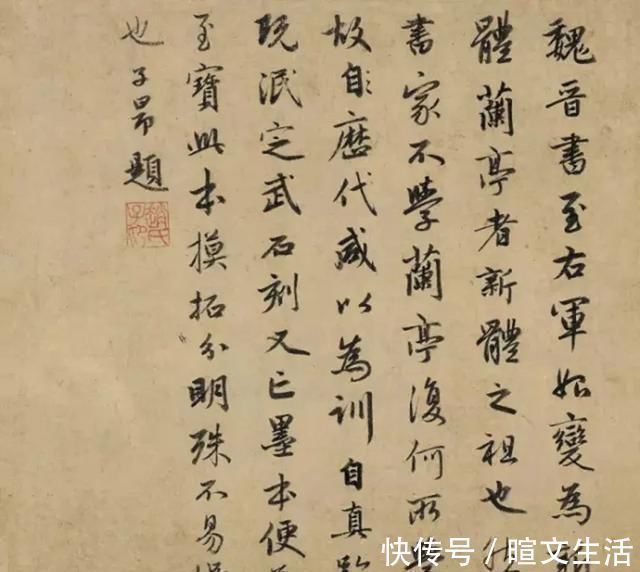 魏晉書至右軍始變為
體蘭亭者新體之祖也
書家不學蘭亭復何所
故自歷代咸以為訓自真
既泯定武石刻又亡墨本便
至寶此本摸拓分明殊不易
也子昂題
趙氏子昂
快传号 / 暄文生活